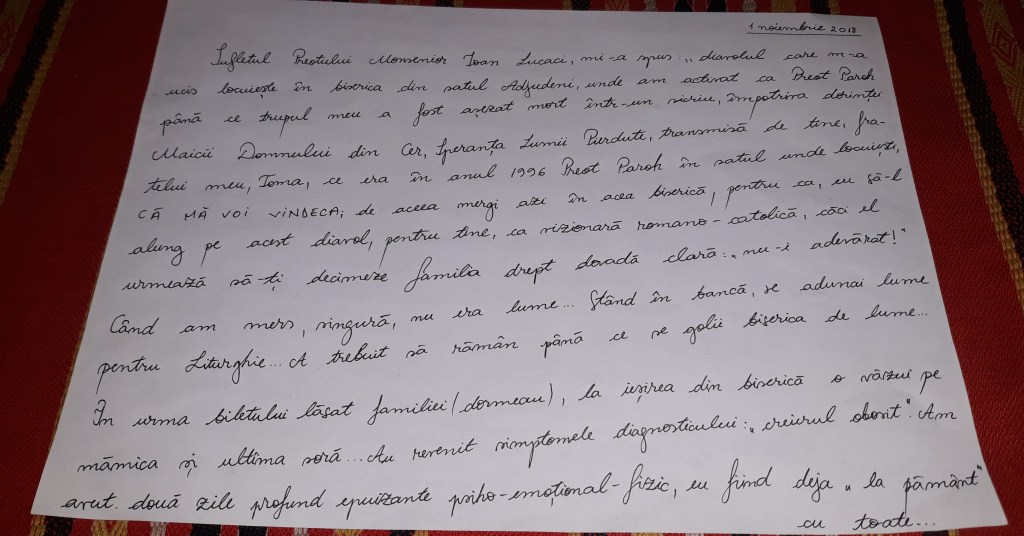 1 noiembrie 2018
Sufletul Preotului Monsenior Ioan Lucaci, mi-a spus: „diavolul care m-a
ucis locuiește în biserica din satul Adjudeni, unde am activat ca Preot Paroh
până ce trupul meu a fost așezat mort într-un sicriu, împotriva dorinței
Maicii Domnului din Cer, Speranța Lumii Purdute, transmisă de tine, fra-
telui meu, Toma, ce era în anul 1996 Preot Paroh în satul unde locuiești,
CĂ MĂ VOI VINDECA; de aceea mergi azi în acea biserică, pentru ca, eu să-l
alung pe acest diavol, pentru tine, ca vizionară romano-catolică, căci el
urmează să-ți decimeze familia drept dovadă clară: „nu-i adevărat!"
Când am mers, singură, nu era lume... Stând în bancă, se adunai lume
pentru Liturghie... A trebuit să rămân până ce se golii biserica de lume...
În urma biletului lăsat familiei (dormeau), la ieșirea din biserică o văszui pe
mămica și ultima soră... Au revenit simptomele diagnosticului: „creierul obosit". Am
avut două zile profund epuizante psiho-emoțional-fizic, eu fiind deja „la pământ"
cu toate...